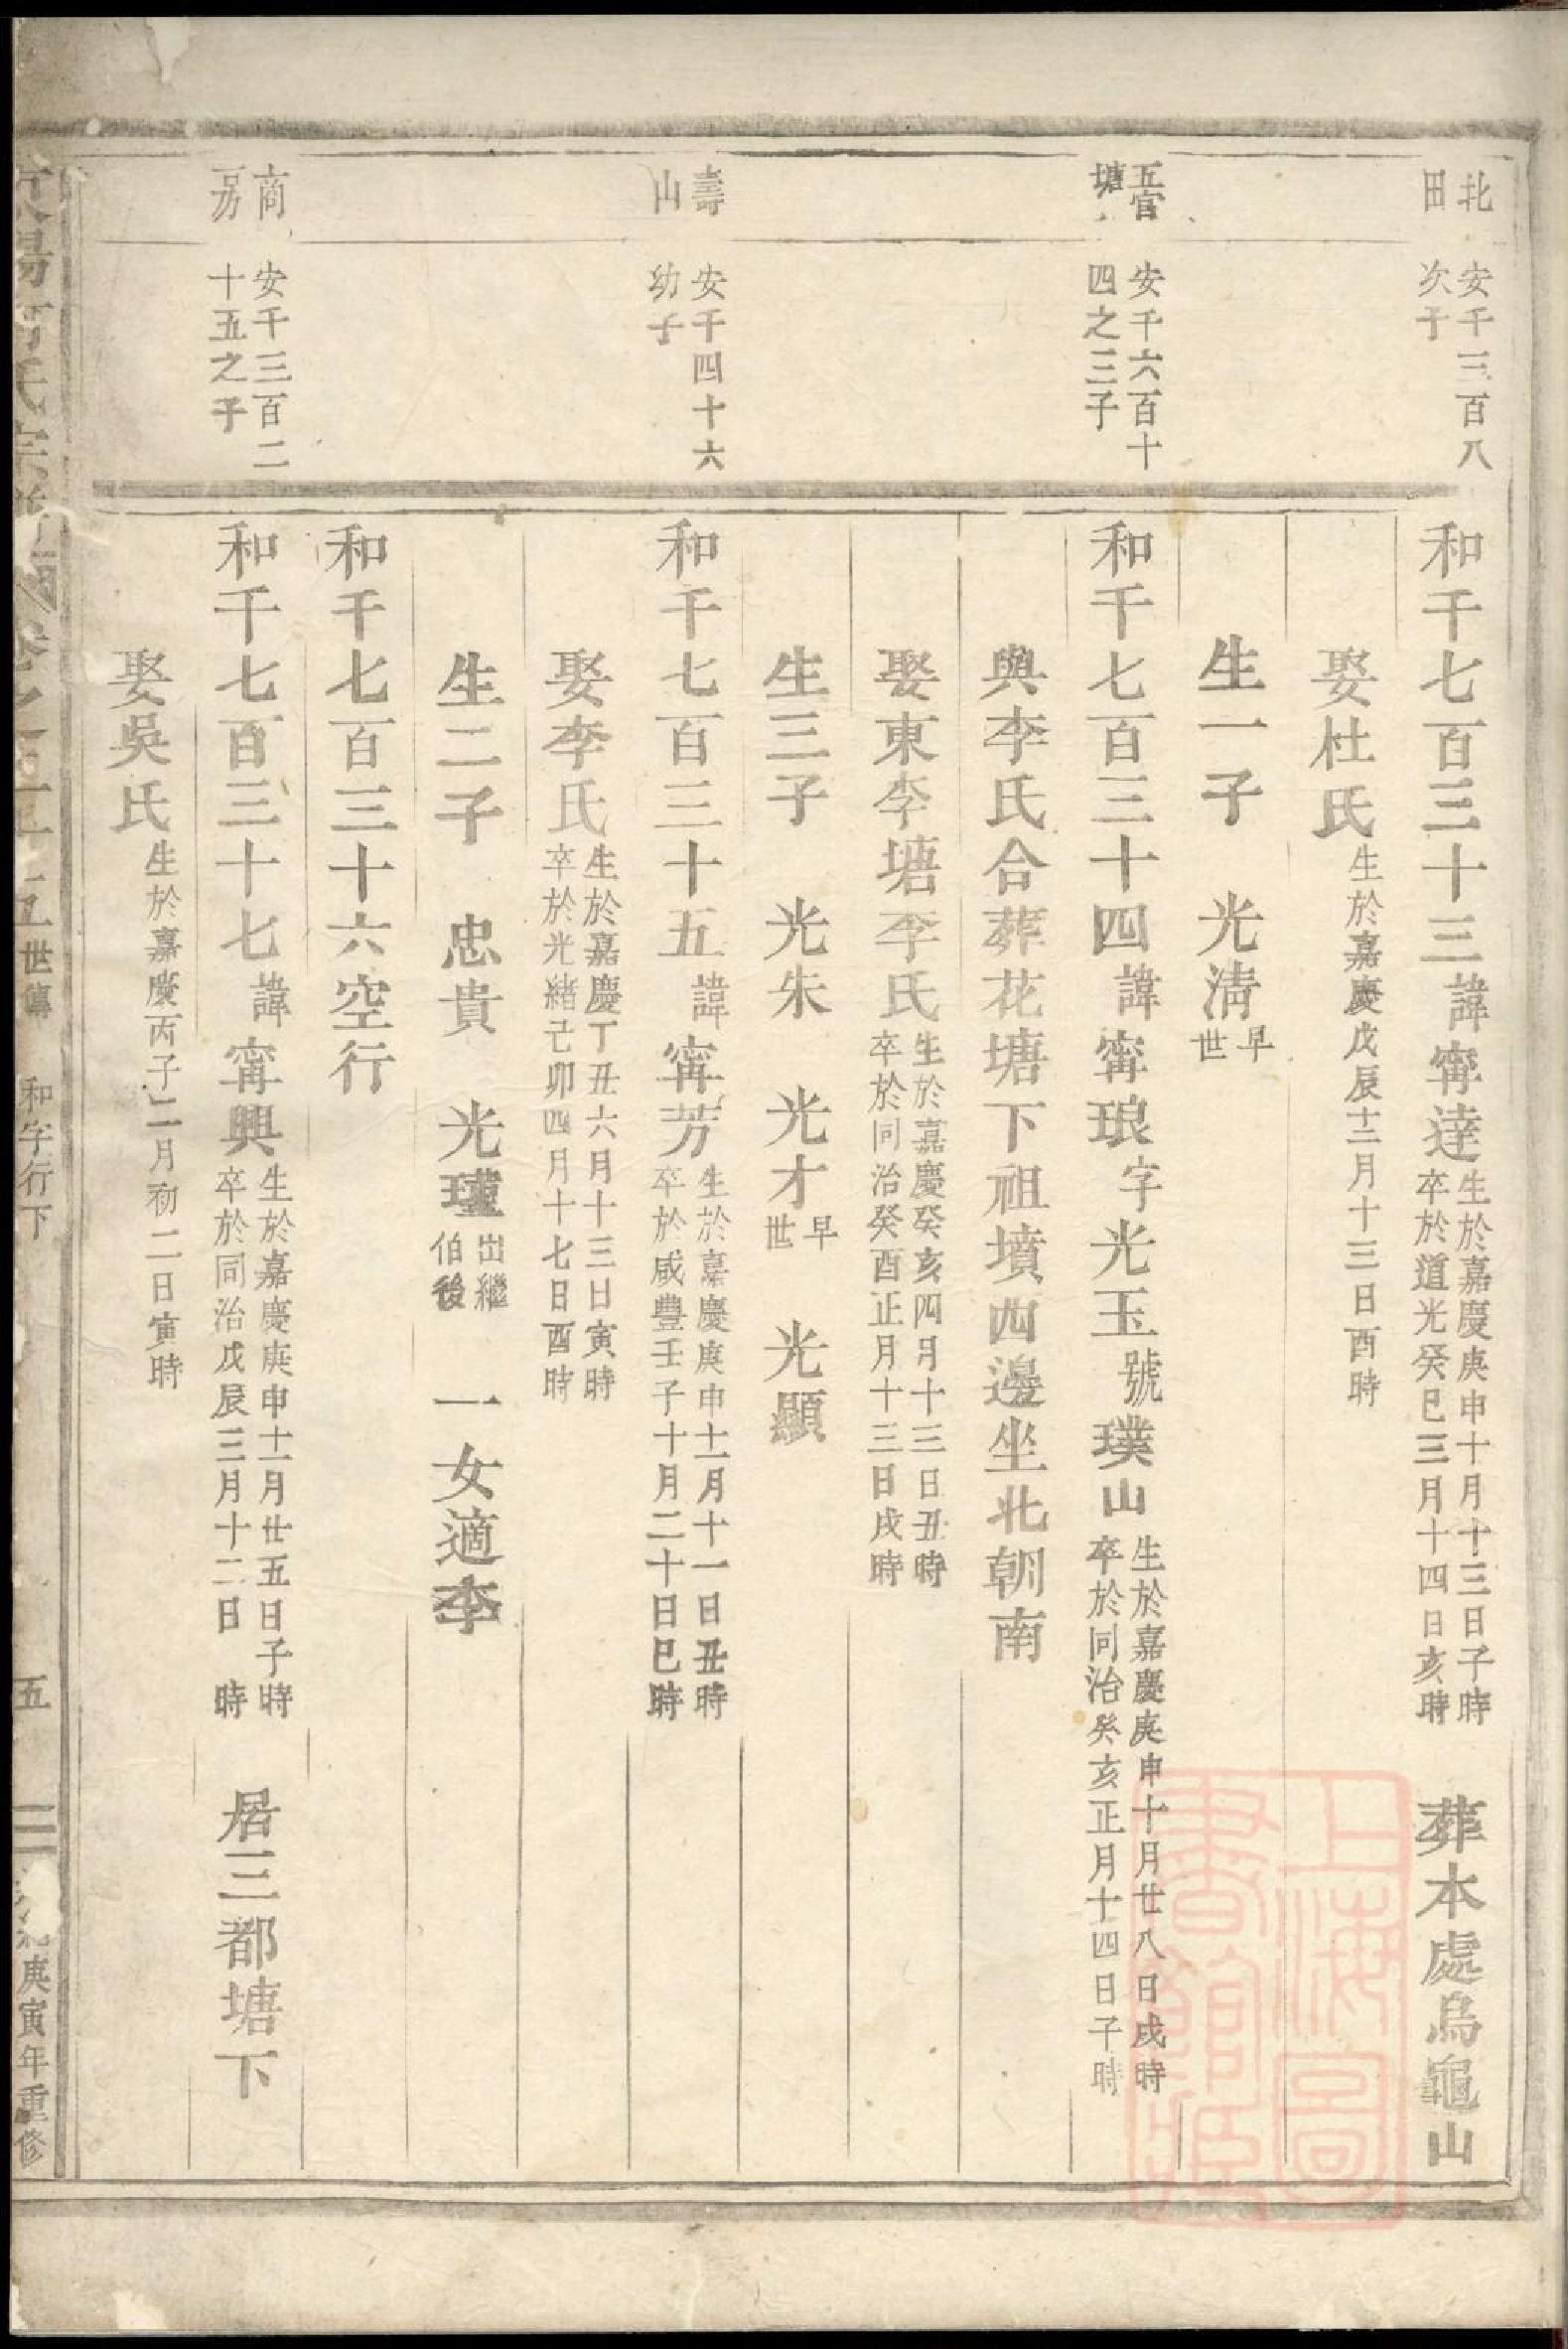 北田
安千三百八
次子
和千七百三十三諱甯達生於嘉慶庚申十月十三日子時卒於道光癸巳三月十四日亥時 葬本處烏龜山
娶杜氏生於嘉慶戊辰十二月十三日酉時
生一子 光淸早世
五官塘
安千六百十
四之三子
和千七百三十四諱甯琅字光玉號璞山生於嘉慶庚申十月廿八日戌時卒於同治癸亥正月十四日子時
與李氏合葬花塘下祖墳西邊坐北朝南
娶東李塘李氏生於嘉慶癸亥四月十三日丑時卒於同治癸酉正月十三日戌時
生三子 光朱 光才早世 光顯
壽山
安千四十六
幼子
和千七百三十五諱甯芳生於嘉慶庚申十一月十一日丑時卒於咸豐壬子十月二十日巳時
娶李氏生於嘉慶丁丑六月十三日寅時卒於光緒己卯四月十七日酉時
生二子 忠貴 光瓘出繼伯後 一女適李
和千七百三十六空行
商
安千三百二
十五之子
和千七百三十七諱甯興生於嘉慶庚申十一月廿五日子時卒於同治戊辰三月十二日 時 居三都塘下
娶吳氏生於嘉慶丙子二月初二日寅時
世傳 和字行下 五 庚寅年重修
上海圖書館藏